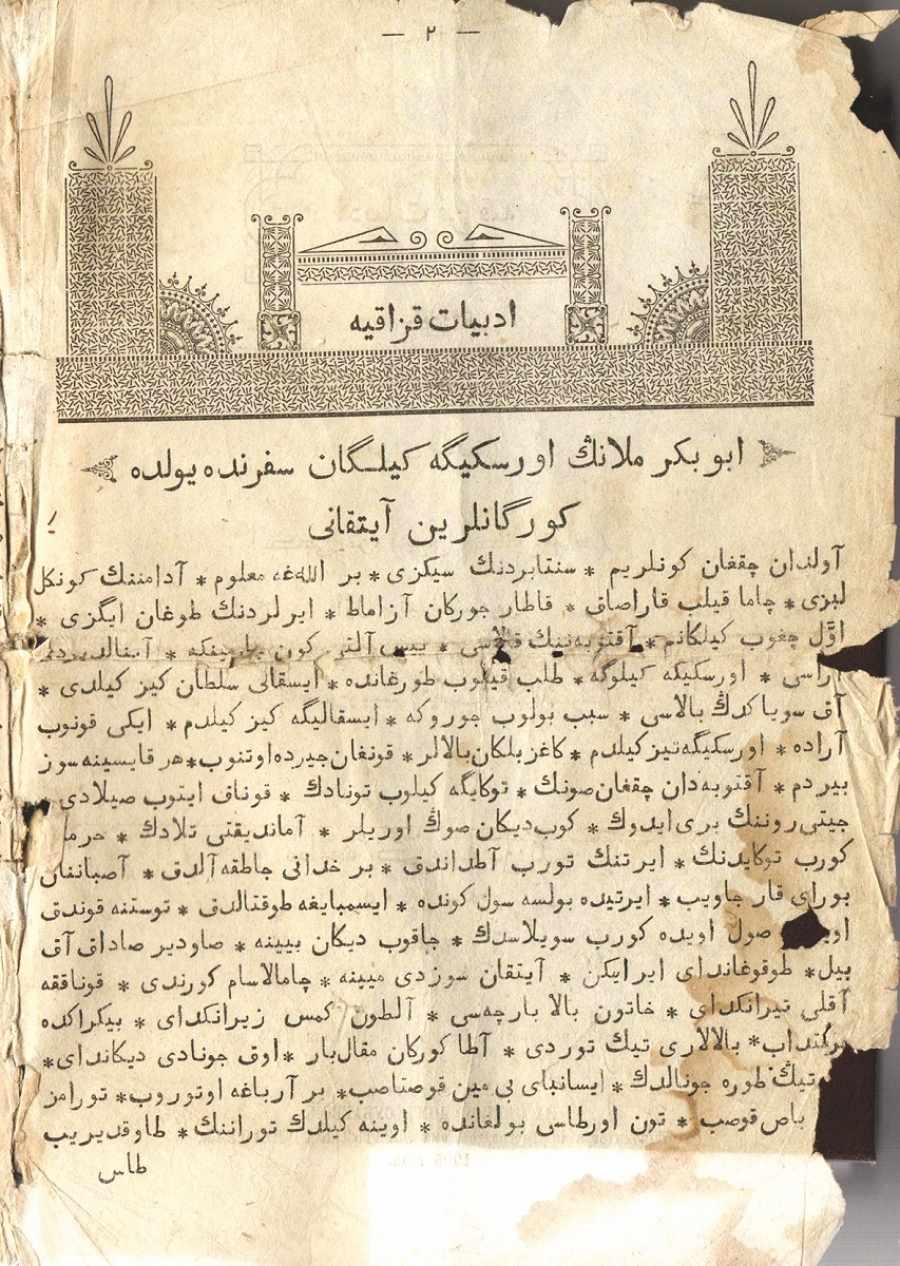 — ٢ —
ادبيات قزاقيه
ابو بكر ملانڭ اورسكيگه كيلگان سفرنده يولده
كورگانلرين آيتقانى
آولندان چقغان كونلريم * سنتابردنڭ سيكزى * بر اللهغه معلوم * آدامننڭ كونكل
لبزى * چاما قيلب قاراصاق * قاطار جوركان آزاماط * ايرلردنڭ طوغان ايگزى *
اوّل چغوب كيلكانم * آقتوبه‌نيڭ قلاسى * بيس آلتى كون
اراسى * اورسكيكه كيلوگه * طلب قيلوب طورغانده * ايسقالى سلطان كيز كيلدى *
آق سوياكدڭ بالاسى * سبب بولوب جوروكه * ايسقاليگه كيز كيلدم * ايكى قونوب
آراده * اورسكيگه تيز كيلدم * كاغز بلكان بالالر * قونغان جيرده اوتنوب * هر قايسينه سوز
بيردم * آقتوبه‌دان چقغان صونڭ * توكايگه كيلوب تونادڭ * قوناق ايتوب صيلادى
جيتى روننڭ برى ايدوڭ * كوب ديكان صوڭ اوريلر * آمانديقتى تلادڭ * حرما
كورب توكايدنڭ * ايرتنڭ تورب آطداندق * بر خدانى جاطقه آلدق * آصبانننان
بوراى قار جاويب * ايرتيده بولسه سول كونده * ايسمبايغه طوقتالدق * توستنه قوندق
صول اويده كورب سويلاسدڭ * جاقوب ديكان بيينه * صاودير صاداق آق
بيل * طوقوغانداى ايرايكن * آيتقان سوزدى ميينه * چامالاسام كورندى * قوناققه
آقلى تيرانكداى * خاتون بالا بارچه‌سى * آلطون كمس زيرانكداى * بيكراكده
بركتداب * بالالارى تيڭ توردى * آطا كوركان مقال بار * اوق جونادى ديكانداى *
تيڭ طوره جونالدڭ * ايسانباى بى مين قوصتاصب * بر آرباغه اوتوروب * تورامز
باص قوصب * تون اورطاسى بولغانده * اوينه كيلدڭ تورانڭ * طاوقديريب
طاس